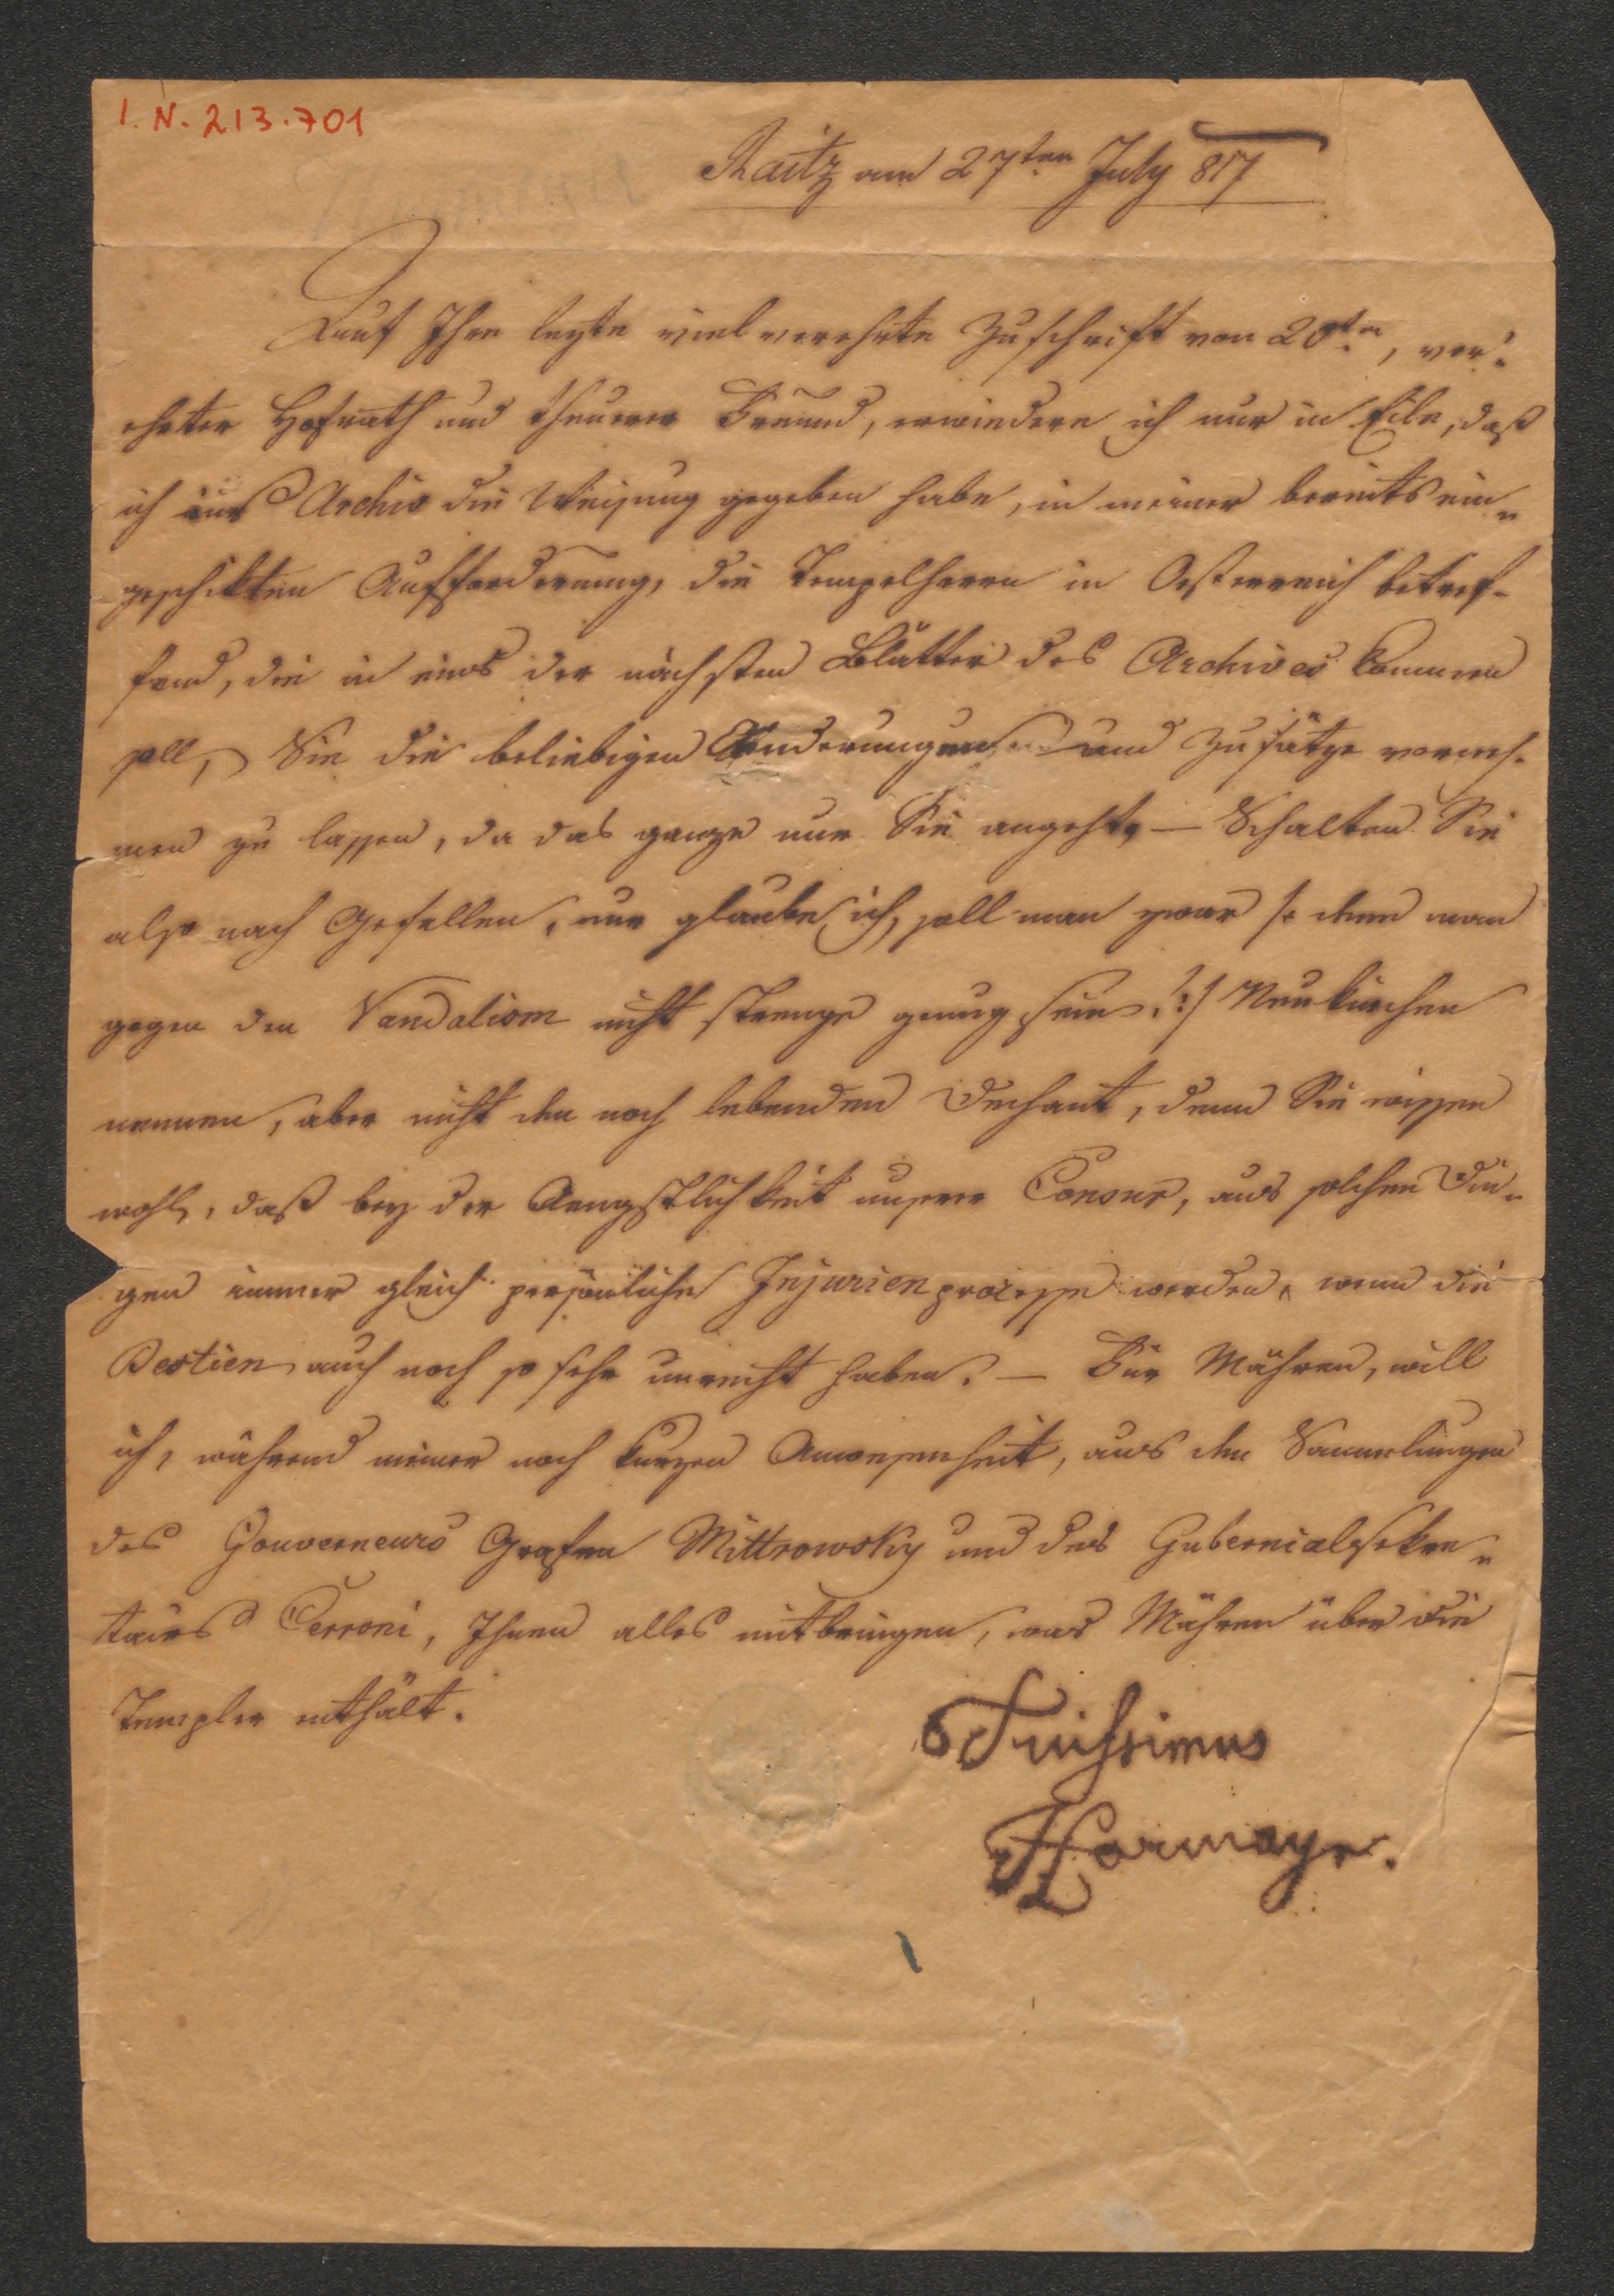 I. N. 213.701
Raitz am 27ten July 817
Auf Ihre lezte viel verehrte Zuschrift von 20ten, ver-
ehrter Hofrath und theurer Freund, erwiedere ich nur in Eile, daß
ich ins Archiv die Weisung gegeben habe, in meiner bereits ein-
geschikten Aufforderung, die Tempelherrn in Oesterreich betref-
fend, die in eins der nächsten Blätter des Archives kommen
soll, Sie die beliebigen Aenderungen und Zusätze vorneh-
men zu lassen, da das ganze nur Sie angeht, — Schalten Sie
also nach Gefallen, nur glaube ich, soll man zwar /: denn man
gegen den Vandalism nicht strenge genug sein :/ Neukirchen
nennen, aber nicht den noch lebenden Dechant, denn Sie wissen
wohl, daß bey der Aengstlichkeit unserer Censur, aus solchen Din-
gen immer gleich persönliche Injurienprozesse werden, wenn die
Bestien auch noch so sehr unrecht haben. — Für Mähren, will
ich, während meiner noch kurzen Anwesenheit, aus den Sammlungen
des Gouverneurs Grafen Mittrowsky und des Gubernialsekre-
tairs Cerroni, Ihnen alles mitbringen, was Mähren über die
Templer enthält.
Hormayr.